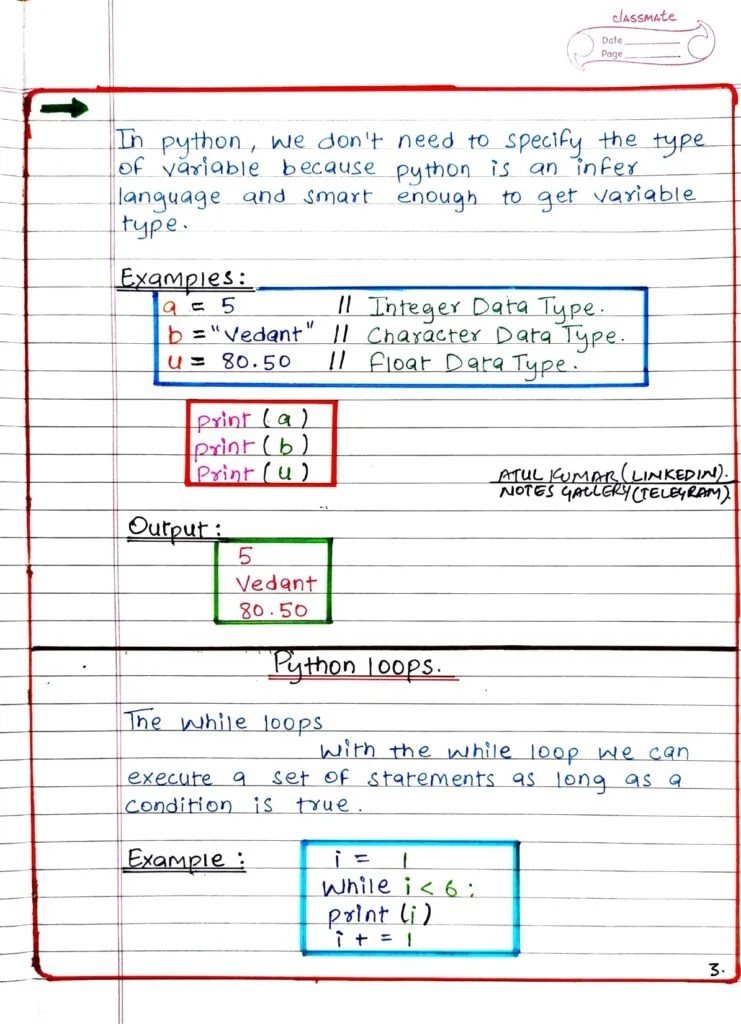 classmate
Date
Page
In python, we don't need to specify the type
of variable because python is an infer
language and smart enough to get variable
type.
Examples:
a = 5 // Integer Data Type.
b = "Vedant" // Character Data Type.
u = 80.50 // Float Data Type.
print (a)
print (b)
Print (u)
ATUL KUMAR (LINKEDIN).
NOTES GALLERY (TELEGRAM)
Output:
5
Vedant
80.50
Python loops.
The while loops
With the while loop we can
execute a set of statements as long as a
condition is true.
Example:
i = 1
while i < 6:
print (i)
i + = 1
3.